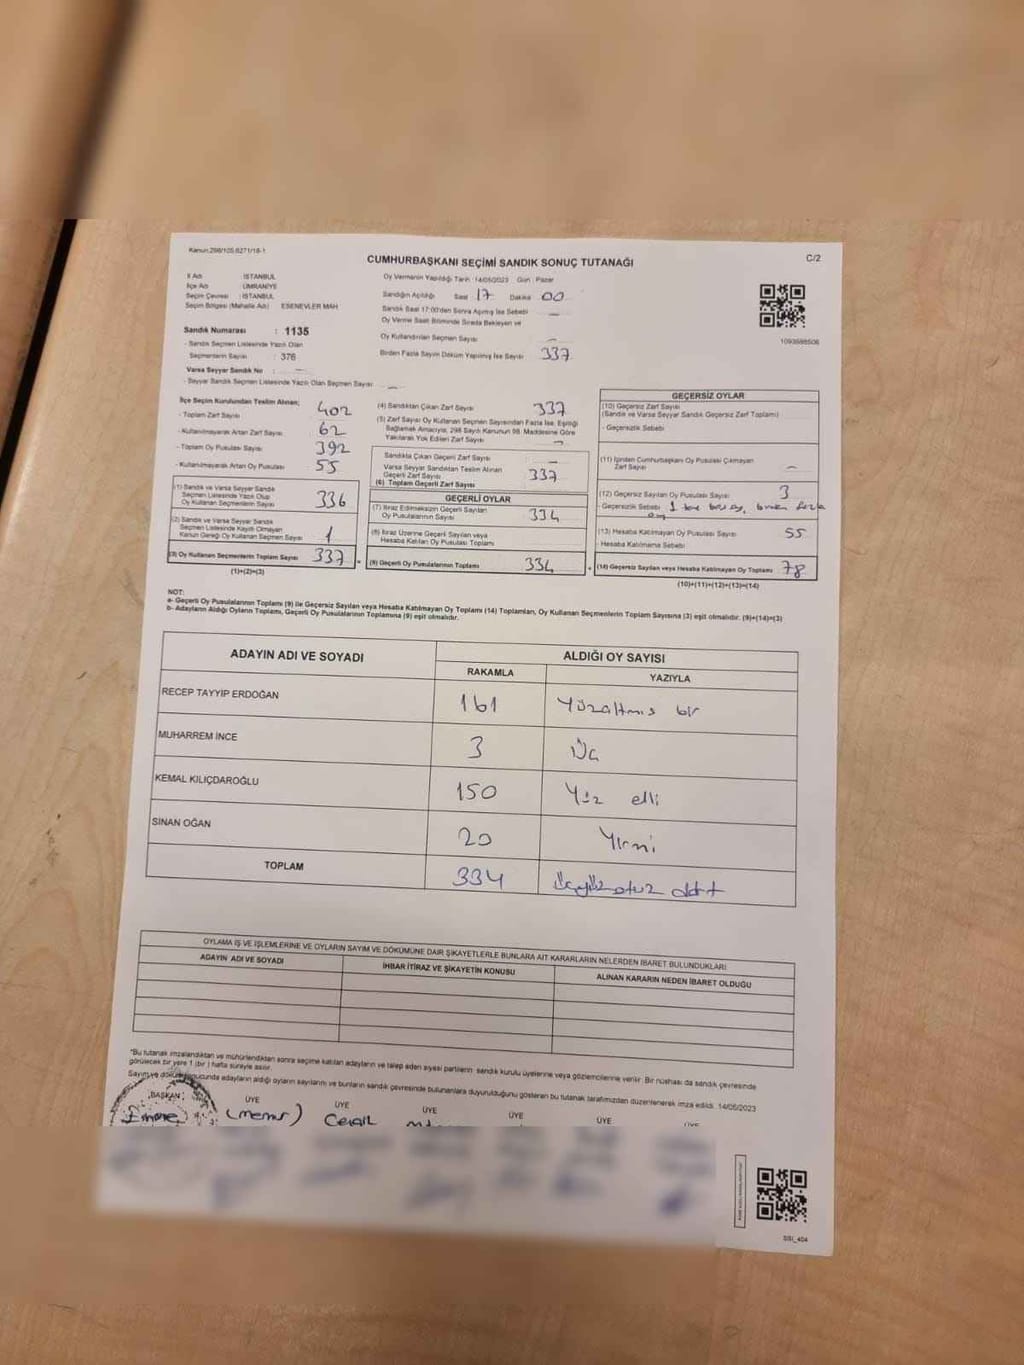 Kanun.298/105.6271/18-1
CUMHURBAŞKANI SEÇİMİ SANDIK SONUÇ TUTANAĞI
C/2
İl Adı : İSTANBUL
İlçe Adı : ÜMRANİYE
Seçim Çevresi : İSTANBUL
Seçim Bölgesi (Mahalle Adı) : ESENEVLER MAH
Sandık Numarası : 1135
- Sandık Seçmen Listesinde Yazılı Olan
Seçmenlerin Sayısı : 376
Varsa Seyyar Sandık No : -
- Seyyar Sandık Seçmen Listesinde Yazılı Olan Seçmen Sayısı : -
Oy Vermenin Yapıldığı Tarih : 14/05/2023 Gün : Pazar
Sandığın Açıldığı Saat 17 Dakika 00
Sandık Saat 17:00'den Sonra Açılmış İse Sebebi -
Oy Verme Saati Bitiminde Sırada Bekleyen ve
Oy Kullandırılan Seçmen Sayısı : -
Birden Fazla Sayım Döküm Yapılmış İse Sayısı : 337
1093588506
İlçe Seçim Kurulundan Teslim Alınan;
- Toplam Zarf Sayısı : 402
- Kullanılmayarak Artan Zarf Sayısı : 62
- Toplam Oy Pusulası Sayısı : 392
- Kullanılmayarak Artan Oy Pusulası : 55
(1) Sandık ve Varsa Seyyar Sandık
Seçmen Listesinde Yazılı Olup
Oy Kullanan Seçmenlerin Sayısı : 336
(2) Sandık ve Varsa Seyyar Sandık
Seçmen Listesinde Kayıtlı Olmayan
Kanun Gereği Oy Kullanan Seçmen Sayısı : 1
(3) Oy Kullanan Seçmenlerin Toplam Sayısı : 337
(1)+(2)=(3)
(4) Sandıktan Çıkan Zarf Sayısı : 337
(5) Zarf Sayısı Oy Kullanan Seçmen Sayısından Fazla İse, Eşitliği
Sağlamak Amacıyla; 298 Sayılı Kanunun 98. Maddesine Göre
Yakılarak Yok Edilen Zarf Sayısı : -
Sandıkta Çıkan Geçerli Zarf Sayısı : -
Varsa Seyyar Sandıktan Teslim Alınan
Geçerli Zarf Sayısı : 337
(6) Toplam Geçerli Zarf Sayısı
GEÇERLİ OYLAR
(7) İtiraz Edilmeksizin Geçerli Sayılan
Oy Pusulalarının Sayısı : 334
(8) İtiraz Üzerine Geçerli Sayılan veya
Hesaba Katılan Oy Pusulası Toplamı
(9) Geçerli Oy Pusulalarının Toplamı : 334
GEÇERSİZ OYLAR
(10) Geçersiz Zarf Sayısı
(Sandık ve Varsa Seyyar Sandık Geçersiz Zarf Toplamı)
- Geçersizlik Sebebi
(11) İçinden Cumhurbaşkanı Oy Pusulası Çıkmayan
Zarf Sayısı : -
(12) Geçersiz Sayılan Oy Pusulası Sayısı : 3
- Geçersizlik Sebebi 1
(13) Hesaba Katılmayan Oy Pusulası Sayısı : 55
- Hesaba Katılmama Sebebi
(14) Geçersiz Sayılan veya Hesaba Katılmayan Oy Toplamı : 78
(10)+(11)+(12)+(13)=(14)
NOT:
a- Geçerli Oy Pusulalarının Toplamı (9) ile Geçersiz Sayılan veya Hesaba Katılmayan Oy Toplamı (14) Toplamları, Oy Kullanan Seçmenlerin Toplam Sayısına (3) eşit olmalıdır. (9)+(14)=(3)
b- Adayların Aldığı Oyların Toplamı, Geçerli Oy Pusulalarının Toplamına (9) eşit olmalıdır.
ADAYIN ADI VE SOYADI
ALDIĞI OY SAYISI
RAKAMLA
YAZIYLA
RECEP TAYYIP ERDOĞAN 161 Yüzaltmış bir
MUHARREM İNCE 3 Üç
KEMAL KILIÇDAROĞLU 150 Yüz elli
SİNAN OĞAN 20 Yirmi
TOPLAM 334 Üçyüzotuz dört
OYLAMA İŞ VE İŞLEMLERİNE VE OYLARIN SAYIM VE DÖKÜMÜNE DAİR ŞİKAYETLERLE BUNLARA AİT KARARLARIN NELERDEN İBARET BULUNDUKLARI
ADAYIN ADI VE SOYADI
İHBAR İTİRAZ VE ŞİKAYETİN KONUSU
ALINAN KARARIN NEDEN İBARET OLDUĞU
"Bu tutanak imzalandıktan ve mühürlendikten sonra seçime katılan adayların ve talep eden siyasi partilerin sandık kurulu üyelerine veya gözlemcilerine verilir. Bir nüshası da sandık çevresinde
görülecek bir yere 1 (bir) hafta süreyle asılır.
Sayım ve döküm sonucunda adayların aldığı oyların sayılarını ve bunların sandık çevresinde bulunanlara duyurulduğunu gösteren bu tutanak tarafımızdan düzenlenerek imza edildi. 14/05/2023
BAŞKAN ÜYE ÜYE ÜYE ÜYE ÜYE ÜYE
Emine (memur)
SSI_404